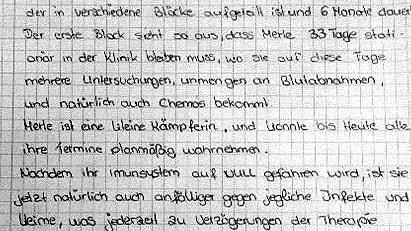 der in verschiedene Blöcke aufgeteilt ist und 6 Monate dauer
Der erste Block sieht so aus, dass Merle 33 Tage stati-
onär in der Klinik bleiben muss, wo sie auf diese Tage
mehrere Untersuchungen, unmengen an Blutabnahmen,
und natürlich auch Chemos bekommt.
Merle ist eine kleine Kämpferin, und konnte bis Heute alle
ihre Termine planmäßig wahrnehmen.
Nachdem ihr Imunsystem auf NULL gefahren wird, ist sie
jetzt natürlich auch anfälliger gegen jegliche Infekte und
Keime, was jederzeit zu Verzögerungen der Therapie